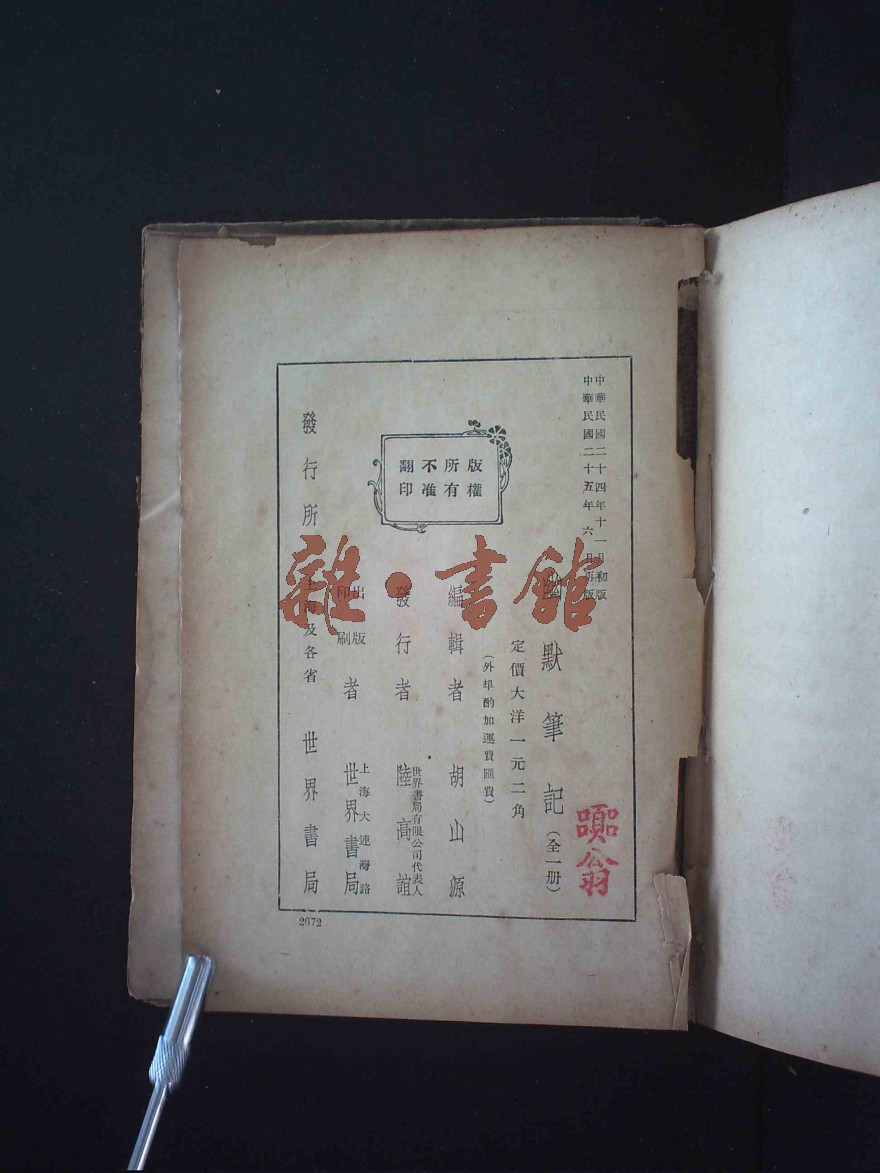 中華民國二十四年十一月初版
中華民國二十五年六月再版
幽默筆記（全一册）
定價大洋一元二角
（外埠酌加運費匯費）
編輯者 胡山源
發行者 陸高誼
世界書局有限公司代表人
出版
印刷
者 世界書局
上海大連灣路
發行所 上海及各省 世界書局
版權
所有
不准
翻印
2672
雜·書館
公翁